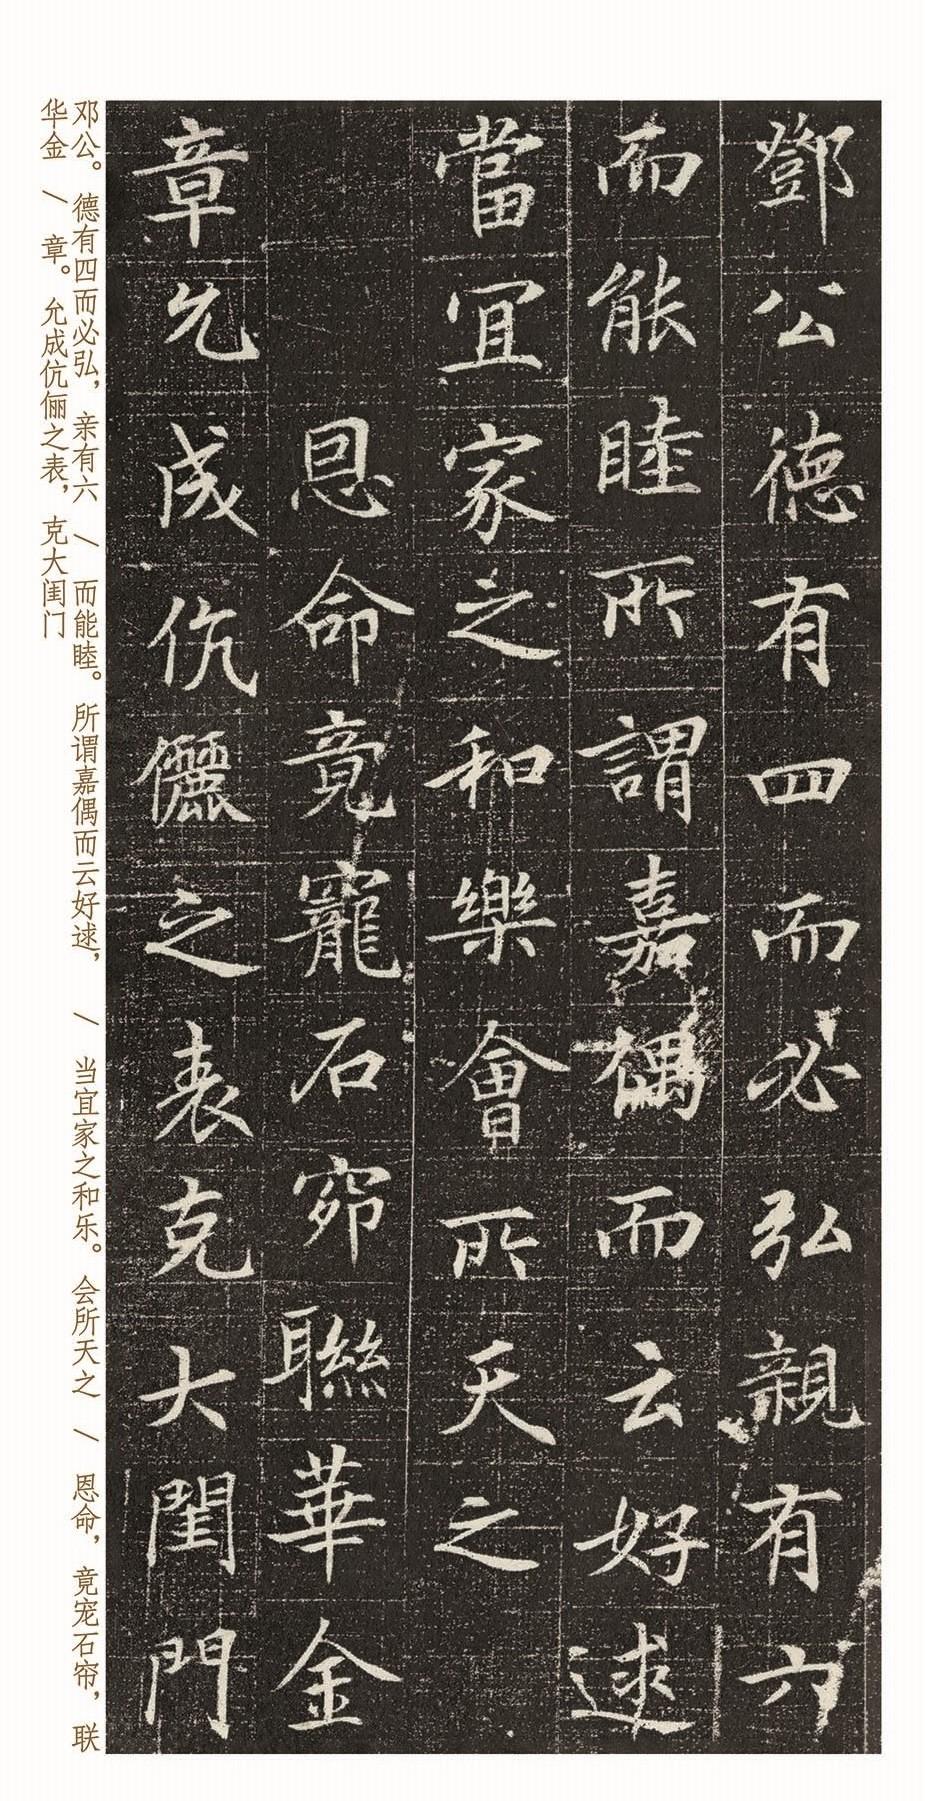 鄧公德有四而必弘親有六
而能睦所謂嘉偶而云好逑
當宜家之和樂會所天之
恩命竟寵石窌聯華金
章允成伉儷之表克大閨門
邓公。德有四而必弘，亲有六/而能睦。所谓嘉偶而云好逑，/当宜家之和乐。会所天之/恩命，竟宠石帘，联
华金/章。允成伉俪之表，克大闺门